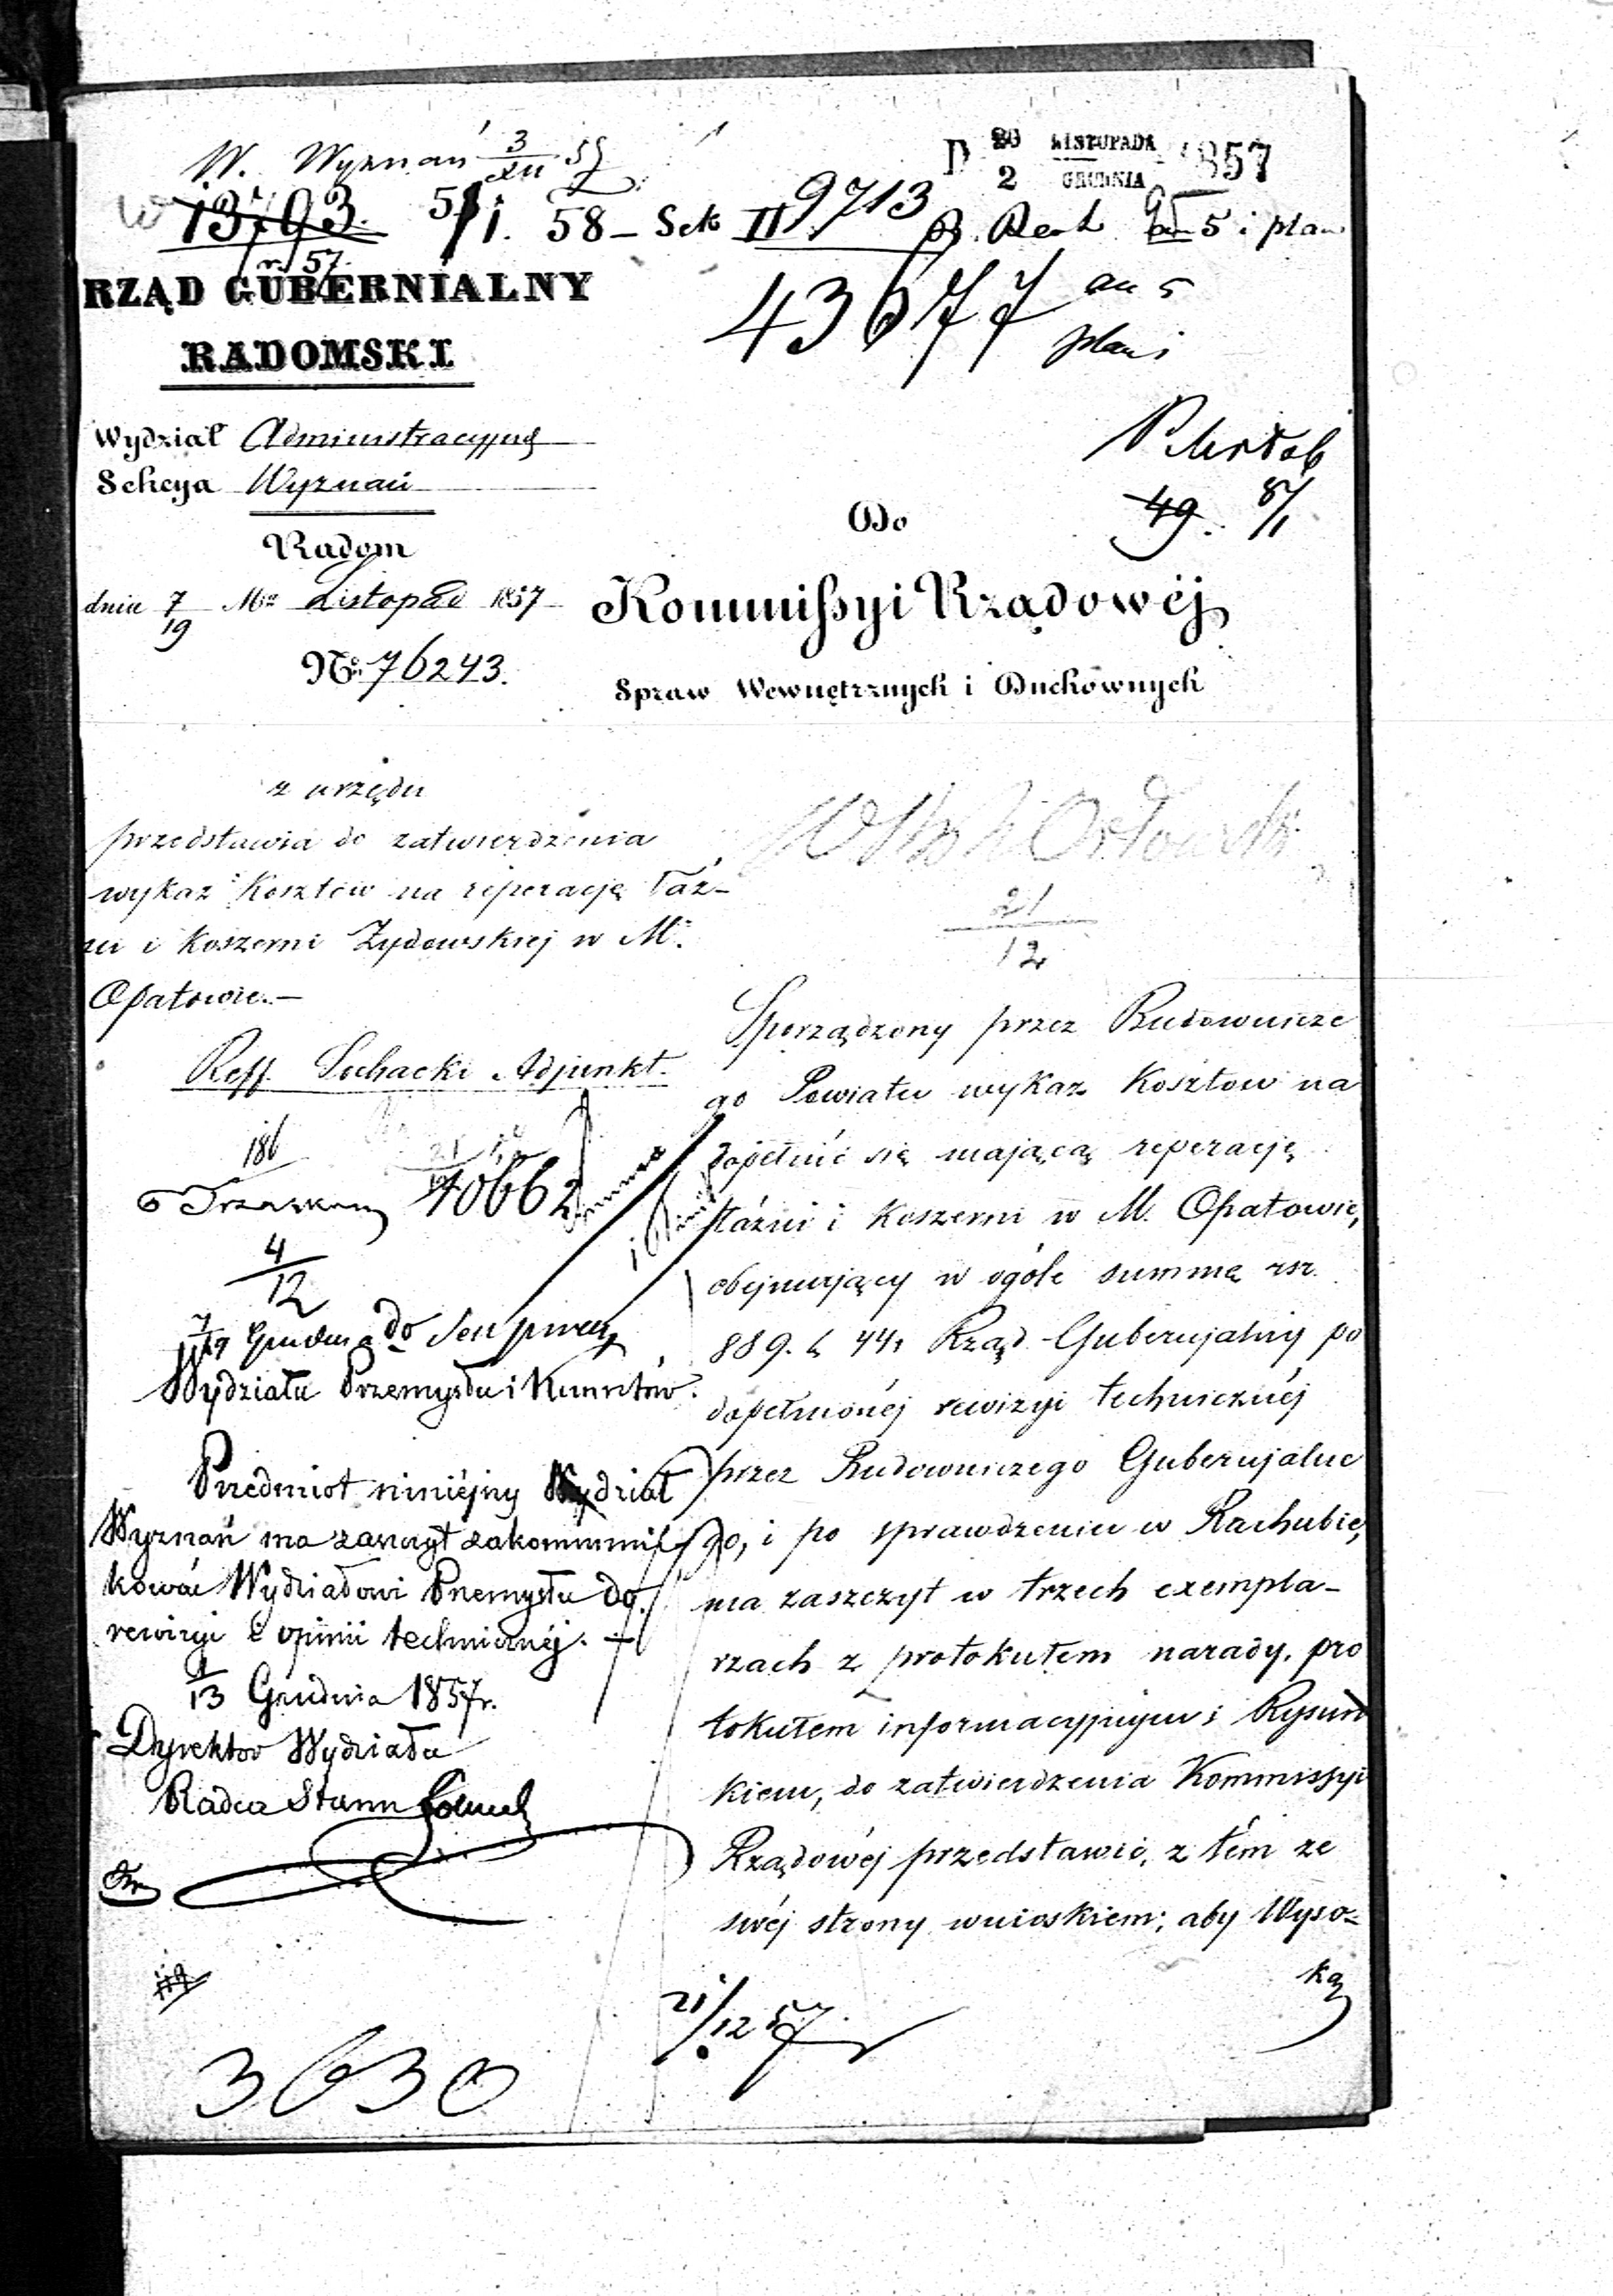 W. Wyznań 3/XII 57
P 20/2 LISTOPADA/GRUDNIA 1857
13793. 5/1. 58 – Sek II 9713 5 i plan
r. 57.
RZĄD GUBERNIALNY
RADOMSKI
43677 an 5
plan i
Wydział Administracyjny
Sekcya Wyznań
49. 8/1
Radom
Do
dnia 7/19 Mca Listopad 1857
Kommissyi Rządowéj
No 76243.
Spraw Wewnętrznych i Duchownych
z urzędu
przedstawia do zatwierdzenia
wykaz Kosztów na reperację Łaź-
ni i Koszerni Żydowskiej w M.
Opatowie.—
Reff. Sochacki Adjunkt.
21
12
186
40662
4
12
7/19 Grudnia do
Wydziału Przemysłu i Kunsztów.
Przedmiot niniéjszy Wydział
Wyznań ma zaszczyt zakommuni-
kować Wydziałowi Przemysłu do
rewizyi i opinii technicznéj.
1/13 Grudnia 1857r.
Dyrektor Wydziału
Radca Stanu
Sporządzony przez Budownicze
go Powiatu wykaz Kosztów na
dopełnić się mającą reperację
Łaźni i Koszerni w M. Opatowie,
obejmujący w ogóle summę rsr.
889. k 44, Rząd Gubernjalny po
dopełnionéj rewizyi technicznéj
przez Budowniczego Gubernjalne
go, i po sprawdzeniu w Rachubie,
ma zaszczyt w trzech exempla-
rzach z protokułem narady, pro
tokułem informacyjnym i Rysun
kiem, do zatwierdzenia Kommissyi
Rządowéj przedstawić, z tém ze
swéj strony wnioskiem; aby Wyso-
ka
21/12 57
3630